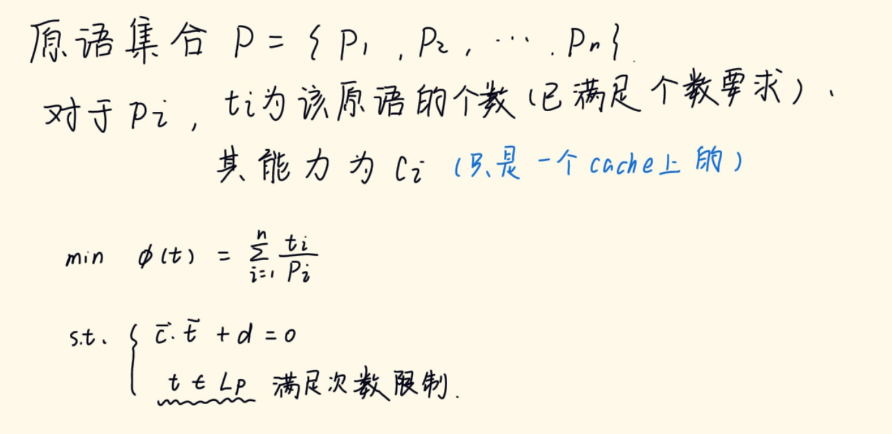 原语集合 P = { P₁ , P₂ , ⋯ . Pₙ } .
对于 Pi , ti为该原语的个数 (已满足个数要求) 、
其能力为 Ci (只是一个cache上的)
min ϕ(t) = ∑_{i=1}^{n} ti/Pi
s.t. { c⃗·t⃗ + d = 0
t ∈ Lp 满足次数限制.